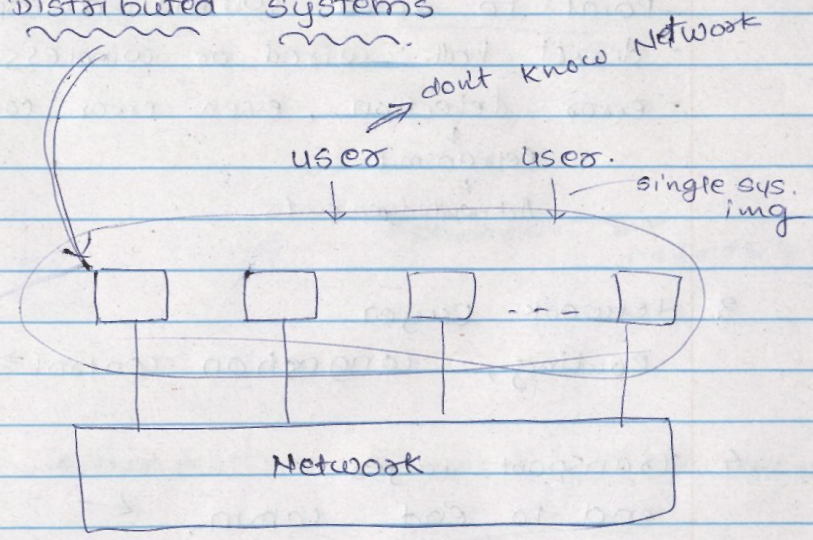 Distributed Systems
don't know Network
user user.
single sys.
img
- - -
Network